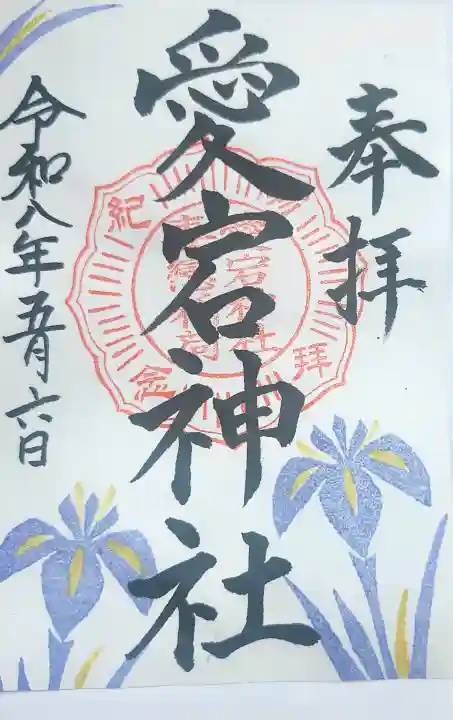 奉拝
愛宕神社
参拝紀念
令和八年五月六日